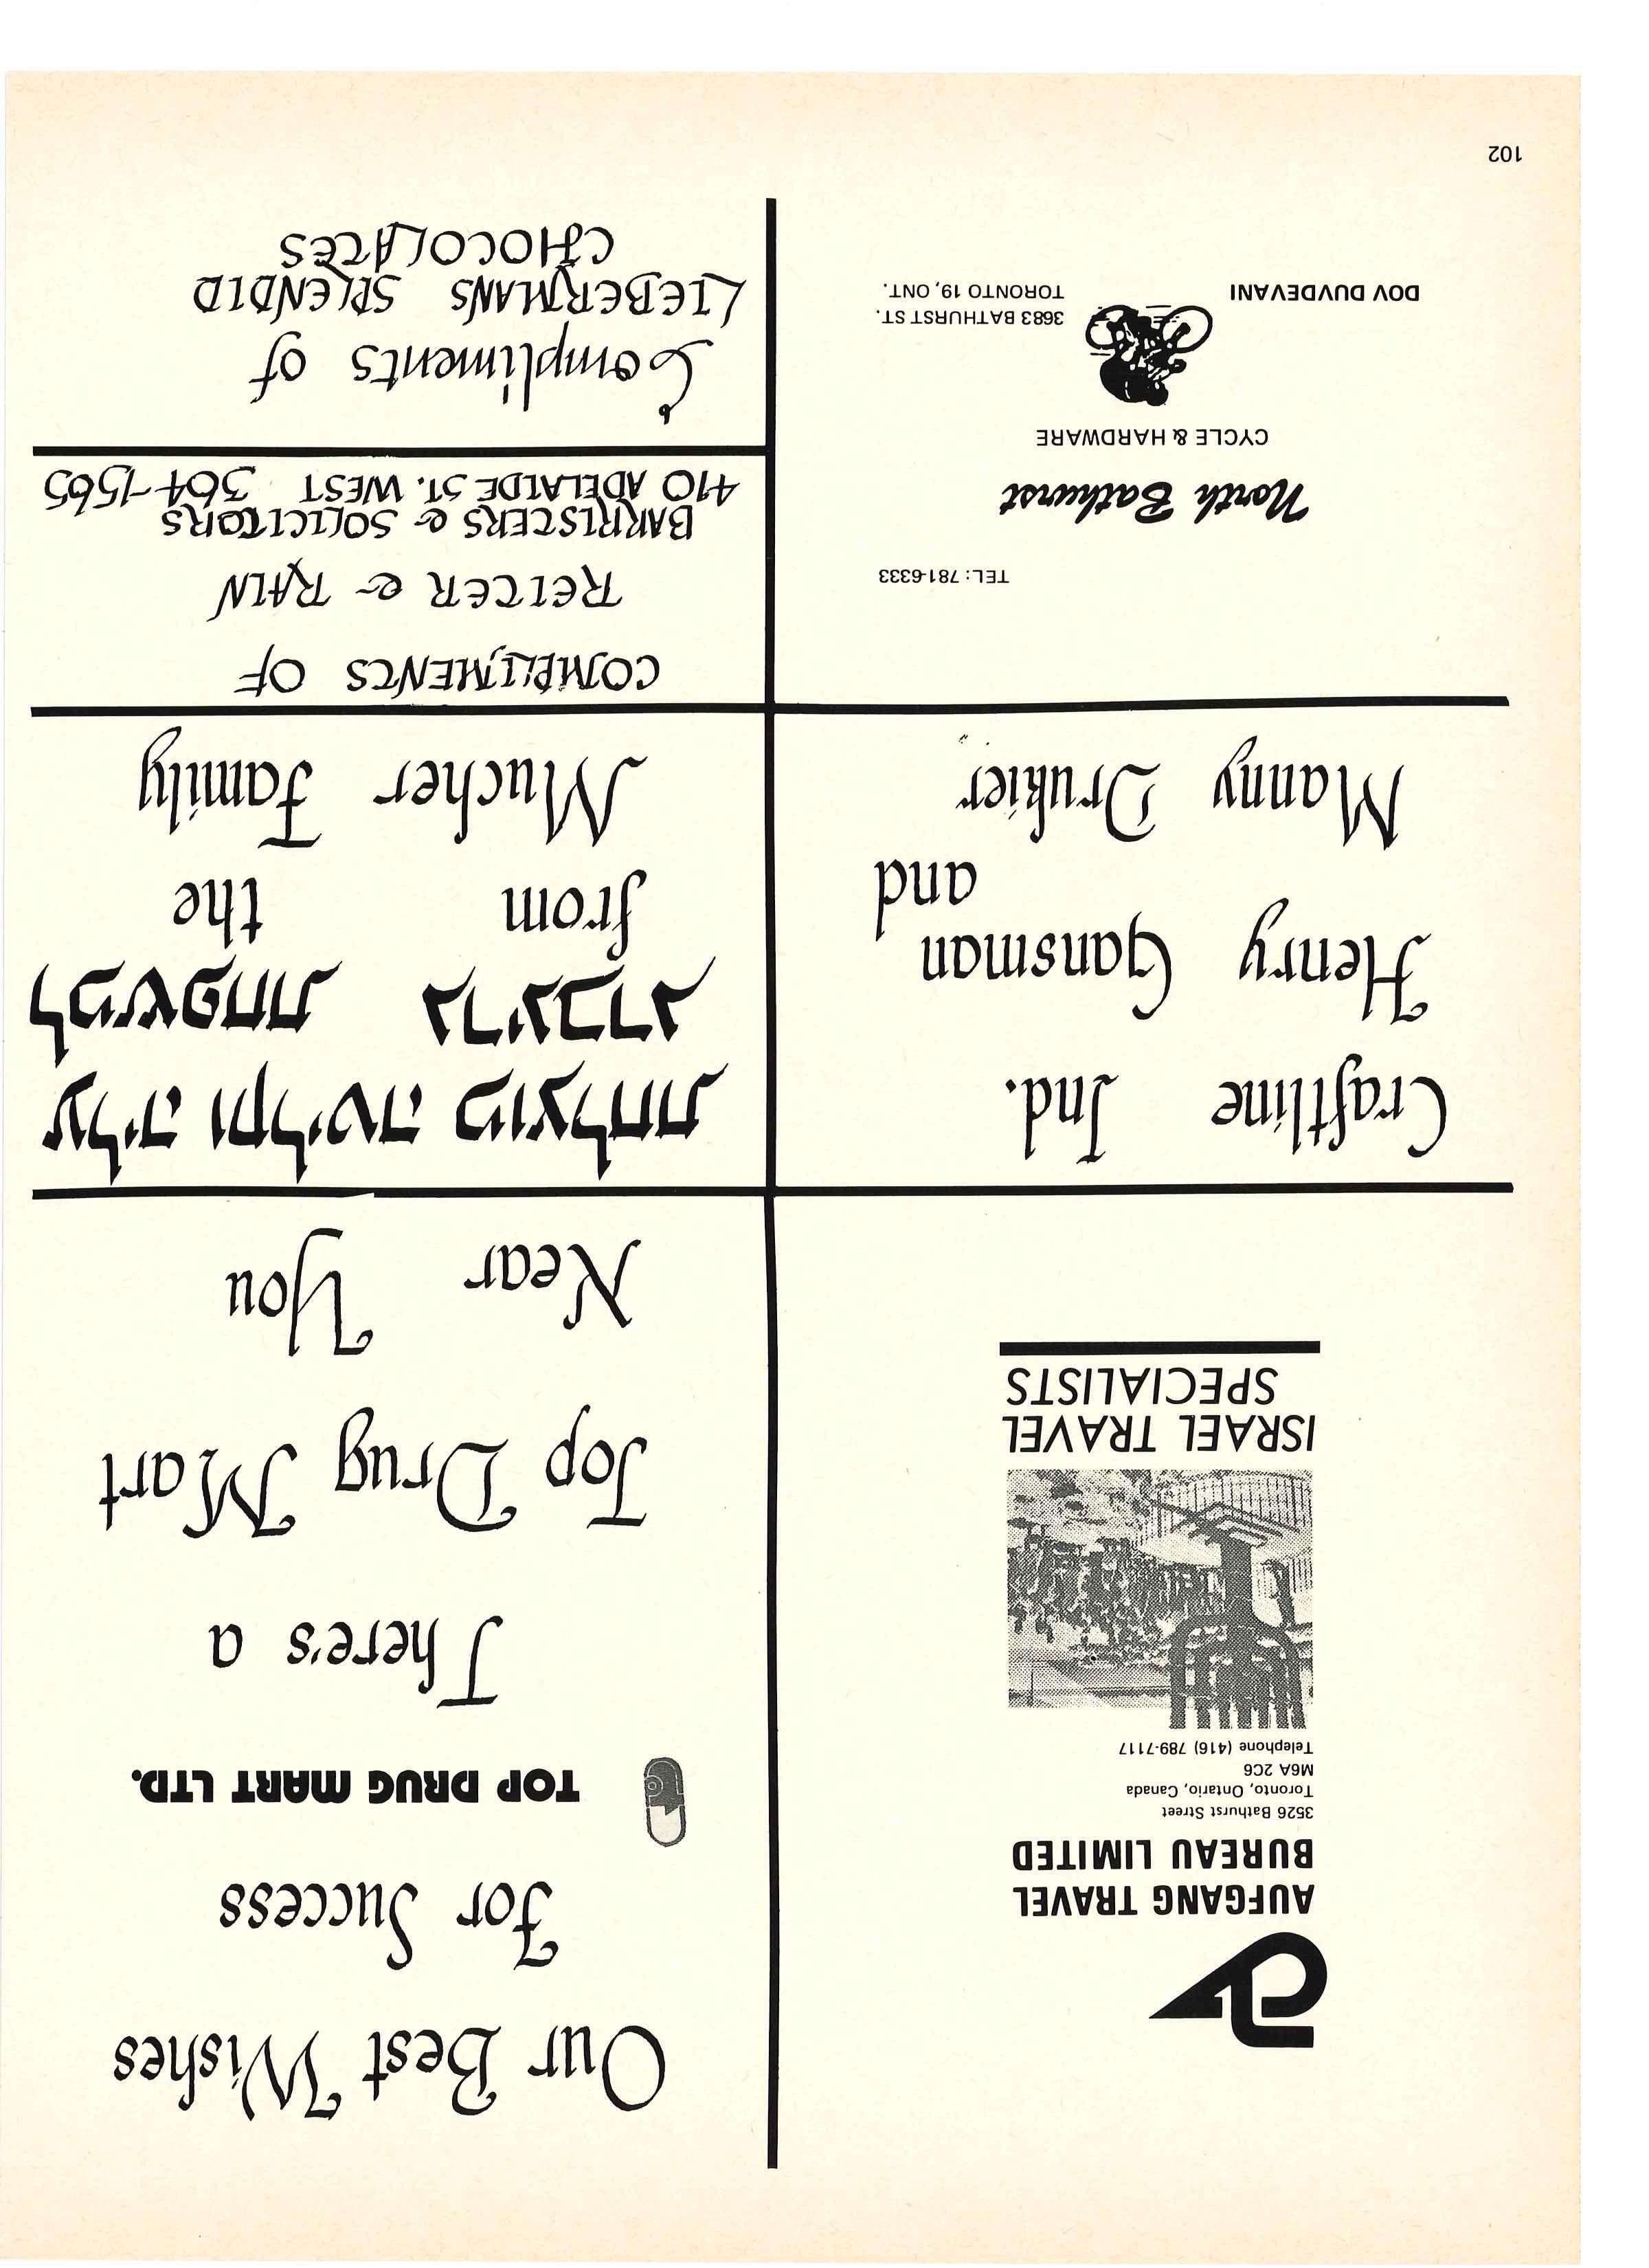 AUFGANG TRAVEL
BUREAU LIMITED
3526 Bathurst Street
Toronto, Ontario, Canada
M6A 2C6
Telephone (416) 789-7117
ISRAEL TRAVEL
SPECIALISTS
Craftline Ind.
Henry Gansman
and
Manny Drukier
TEL: 781-6333
North Bathurst
CYCLE & HARDWARE
3683 BATHURST ST.
DOV DUVDEVANI
TORONTO 19, ONT.
102
Our Best Wishes
For Success
TOP DRUG MART LTD.
There's a
Top Drug Mart
Near You
עליה וקליטה מוצלחת
למשפחת גרינברג
from the
Mucher Family
COMPLIMENTS OF
REITER & RAIN
BARRISTERS & SOLICITORS
410 ADELAIDE ST. WEST 364-1565
Compliments of
LIEBERMANS SPLENDID
CHOCOLATES